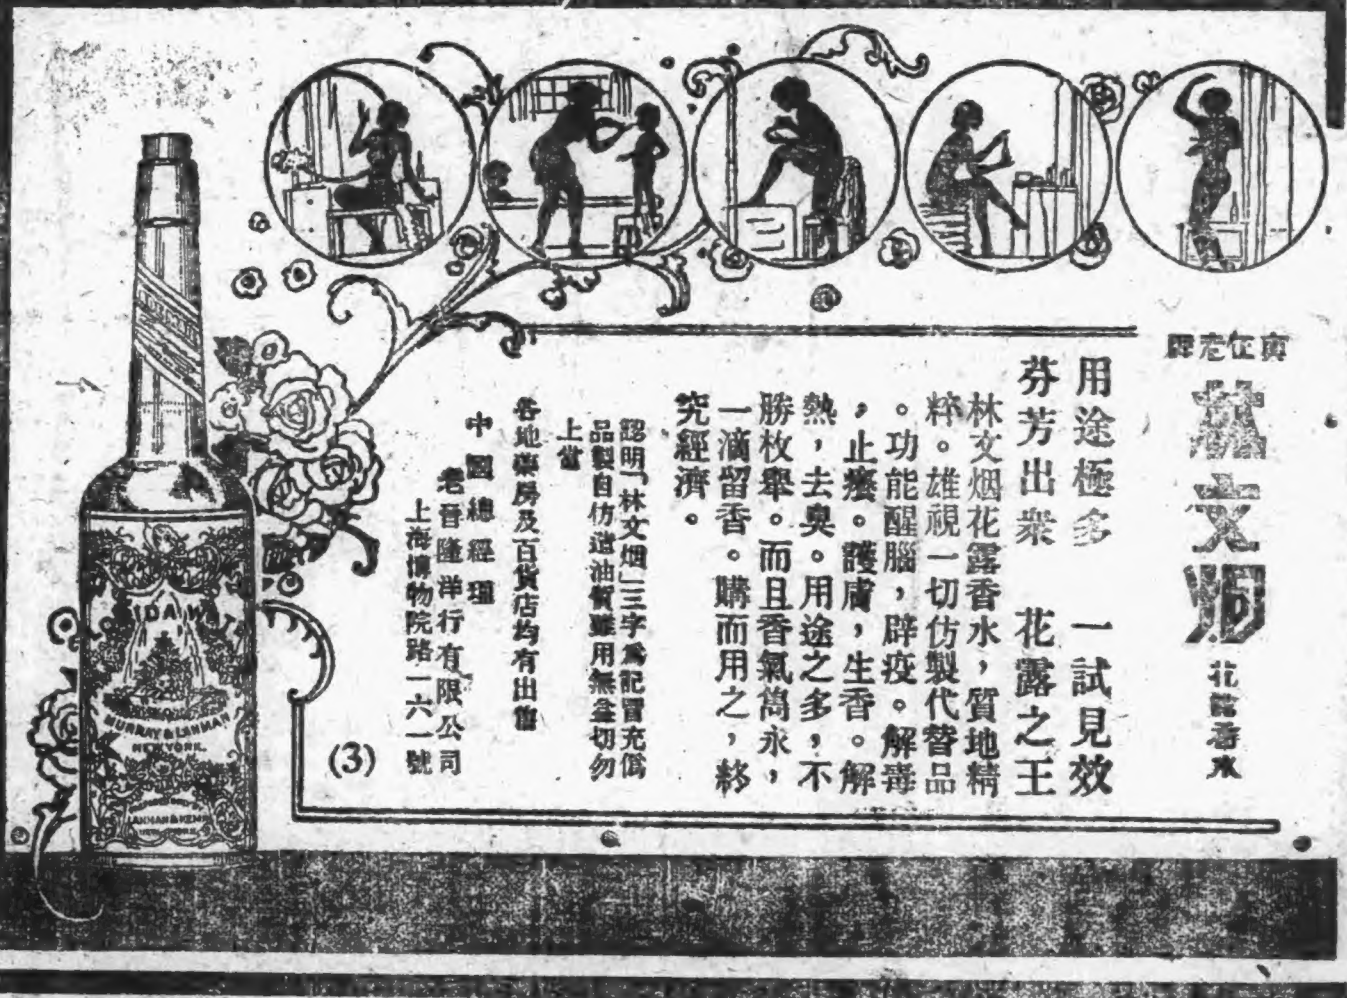 眞正老牌
林文烟
花露香水
用途極多 一試見效
芬芳出衆 花露之王
林文烟花露香水，質地精
粹。雄視一切仿製代替品
。功能醒腦，辟疫。解毒
，止癢。護膚，生香。解
熱，去臭。用途之多，不
勝枚舉。而且香氣雋永，
一滴留香。購而用之，終
究經濟。
認明「林文烟」三字爲記冒充僞
品製自仿造油質雖用無益切勿
上當
各地藥房及百貨店均有出售
中國總經理
老晉隆洋行有限公司
上海博物院路一六一號
(3)
FLORIDA WATER
MURRAY & LANMAN
NEW YORK.
LANMAN & KEMP
NEW YORK.